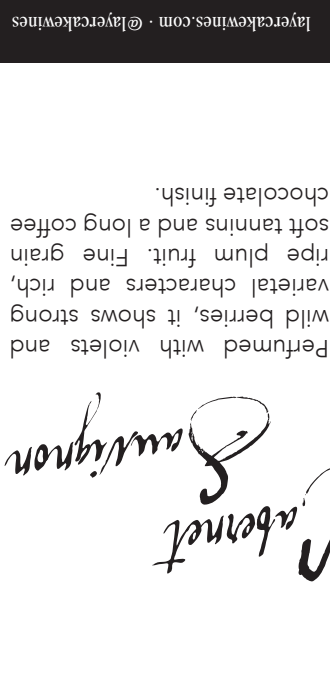 Cabernet
Sauvignon
Perfumed with violets and
wild berries, it shows strong
varietal characters and rich,
ripe plum fruit. Fine grain
soft tannins and a long coffee
chocolate finish.
layercakewines.com · @layercakewines